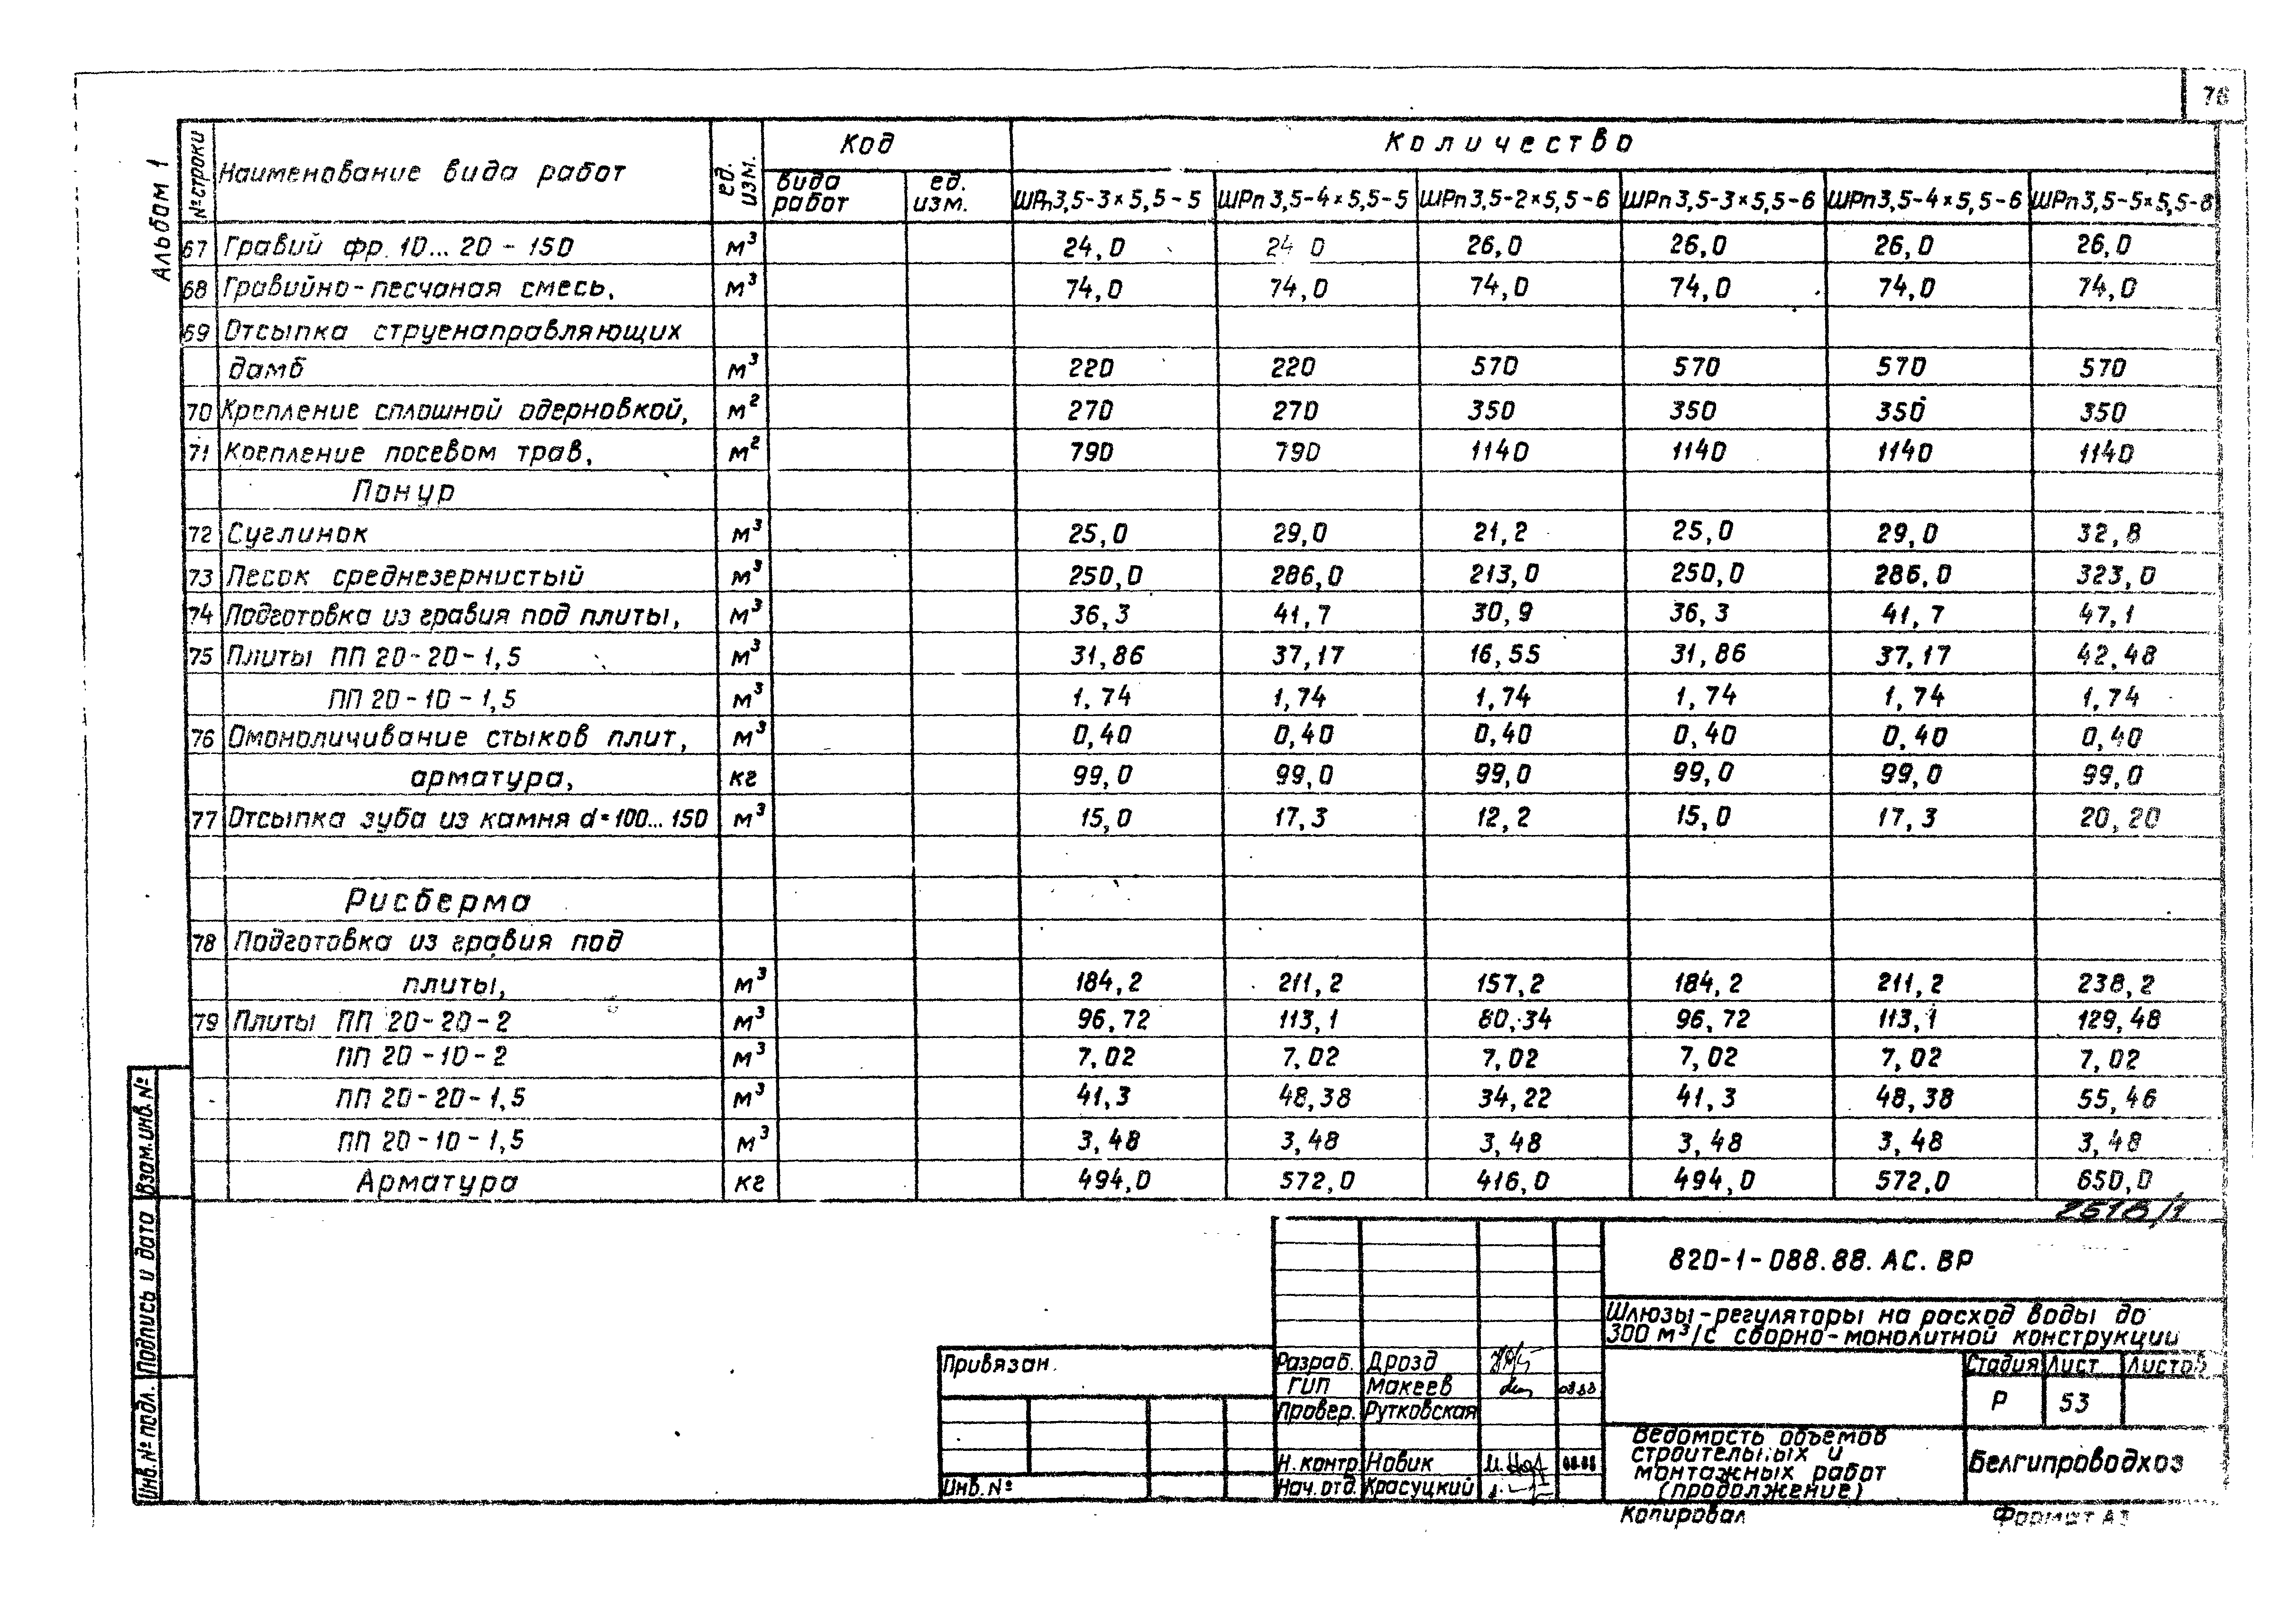 76
Альбом 1
№ строки | Наименование вида работ | ед. изм. | Код | Количество
вида работ | ед. изм. | ШРп 3,5-3×5,5-5 | ШРп 3,5-4×5,5-5 | ШРп 3,5-2×5,5-6 | ШРп 3,5-3×5,5-6 | ШРп 3,5-4×5,5-6 | ШРп 3,5-5×5,5-6
67 Гравий фр. 10...20-150 м³ 24,0 24 0 26,0 26,0 26,0 26,0
68 Гравийно-песчаная смесь, м³ 74,0 74,0 74,0 74,0 74,0 74,0
69 Отсыпка струенаправляющих
дамб м³ 220 220 570 570 570 570
70 Крепление сплошной одерновкой, м² 270 270 350 350 350 350
71 Крепление посевом трав, м² 790 790 1140 1140 1140 1140
Понур
72 Суглинок м³ 25,0 29,0 21,2 25,0 29,0 32,8
73 Песок среднезернистый м³ 250,0 286,0 213,0 250,0 286,0 323,0
74 Подготовка из гравия под плиты, м³ 36,3 41,7 30,9 36,3 41,7 47,1
75 Плиты ПП 20-20-1,5 м³ 31,86 37,17 16,55 31,86 37,17 42,48
ПП 20-10-1,5 м³ 1,74 1,74 1,74 1,74 1,74 1,74
76 Омоноличивание стыков плит, м³ 0,40 0,40 0,40 0,40 0,40 0,40
арматура, кг 99,0 99,0 99,0 99,0 99,0 99,0
77 Отсыпка зуба из камня d=100...150 м³ 15,0 17,3 12,2 15,0 17,3 20,20
Рисберма
78 Подготовка из гравия под
плиты, м³ 184,2 211,2 157,2 184,2 211,2 238,2
79 Плиты ПП 20-20-2 м³ 96,72 113,1 80,34 96,72 113,1 129,48
ПП 20-10-2 м³ 7,02 7,02 7,02 7,02 7,02 7,02
ПП 20-20-1,5 м³ 41,3 48,38 34,22 41,3 48,38 55,46
ПП 20-10-1,5 м³ 3,48 3,48 3,48 3,48 3,48 3,48
Арматура кг 494,0 572,0 416,0 494,0 572,0 650,0
Взам.инв.№
Подпись и дата
Инв.№ подл.
820-1-088.88.АС.ВР
Шлюзы-регуляторы на расход воды до
300 м³/с сборно-монолитной конструкции
Привязан.
Инв.№
Разраб. Дрозд
ГИП Макеев 08.88
Провер. Рутковская
Н.контр Новик 08.88
Нач.отд. Красуцкий
Стадия Лист Листов
Р 53
Ведомость объемов
строительных и
монтажных работ
(продолжение)
Белгипроводхоз
Копировал
Формат А3